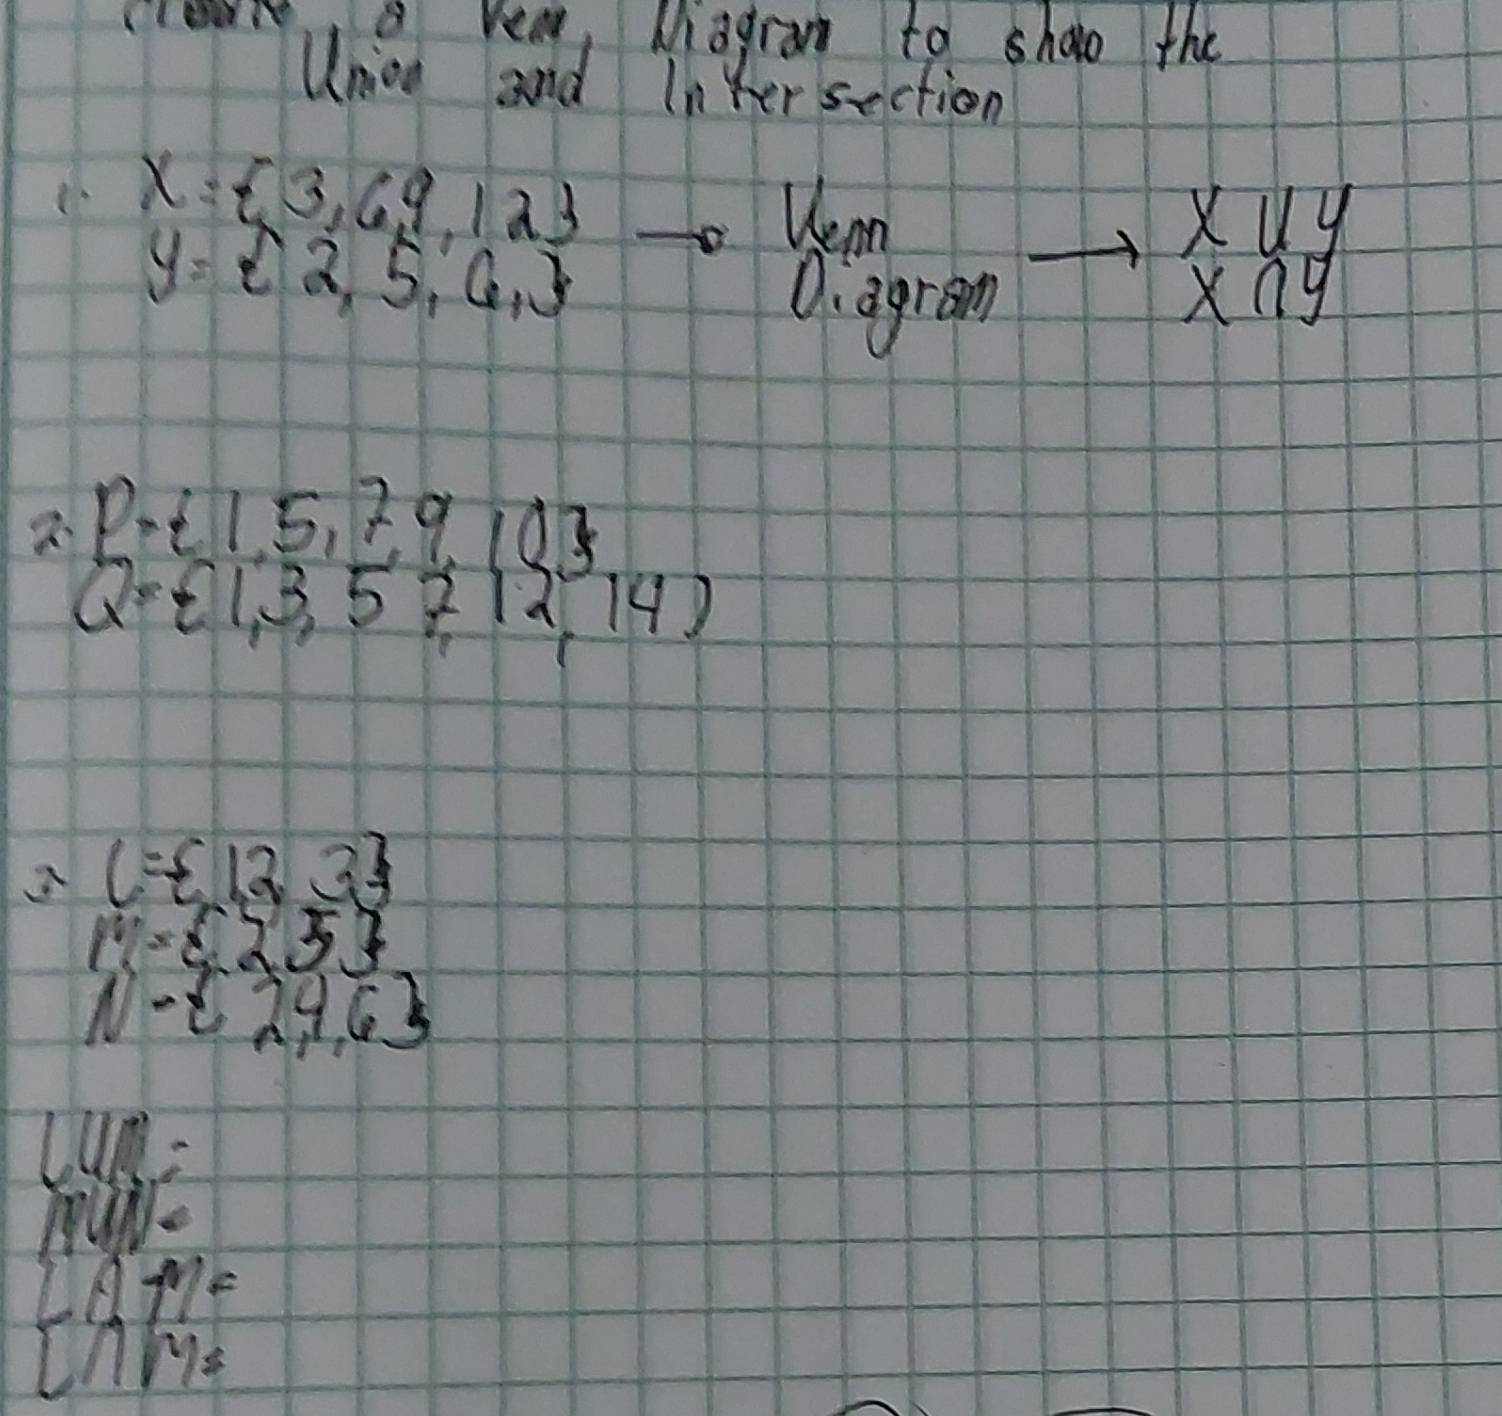 a Venn Diagram to show the
Union and Intersection
1. X = { 3, 6, 9, 12 } → Venn Diagram → X U Y
Y = { 2, 5, 6, } X ∩ Y
2. P = { 1, 5, 7, 9, 10 }
Q = { 1, 3, 5 7, 12, 14 )
3. L = { 1, 2, 3 }
M = { 2, 5 }
N = { 2, 9, 6 }
L U M =
M U N =
L ∩ M =
L ∩ M =